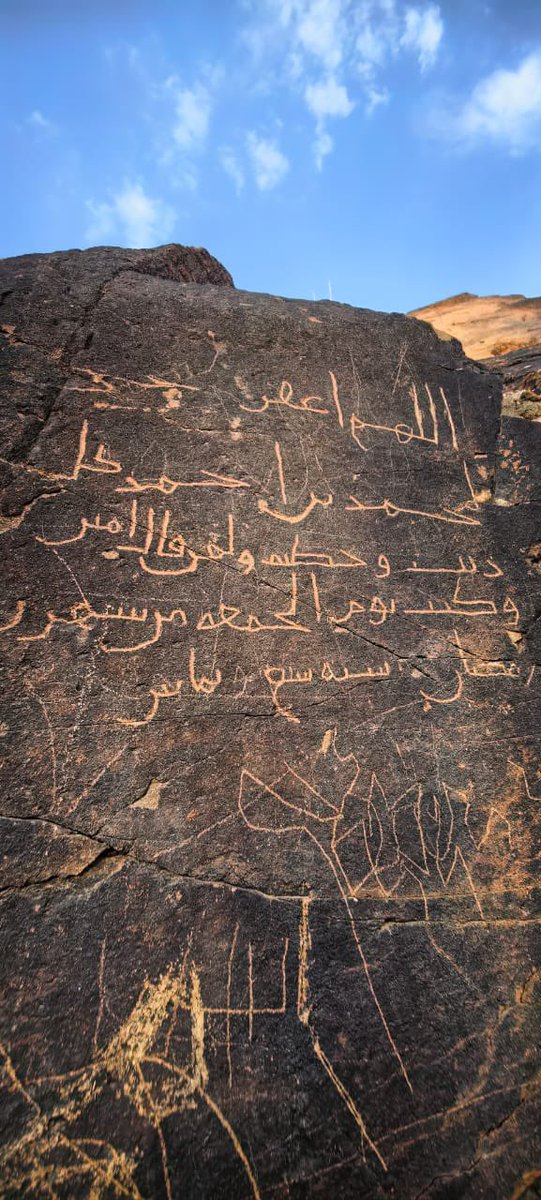 اللهم اغفر
لمحمد بن احمد كل
ذنب وخطه ولمن قال امين
وكتب يوم الجمعه من شهر ر
مضان سنه سبع و مايتين